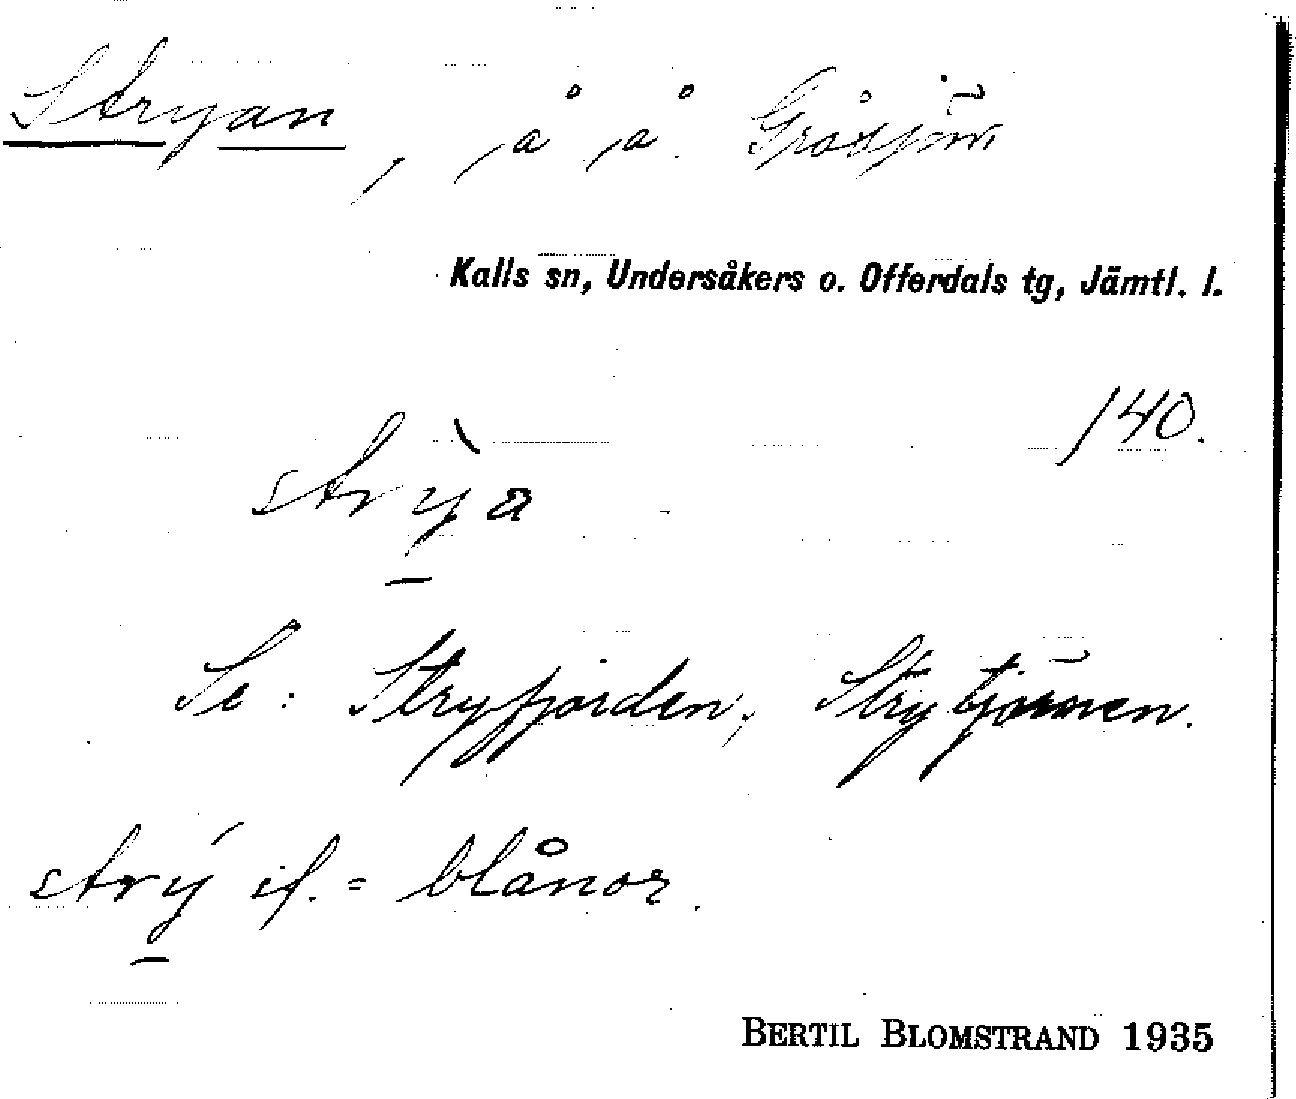 Stryan, å å. Gråsjön
Kalls sn, Undersåkers o. Offerdals tg, Jämtl. l.
140.
strỳa
Se: Stryfjorden, Strytjärnen.
strý sf. = blånor.
BERTIL BLOMSTRAND 1935